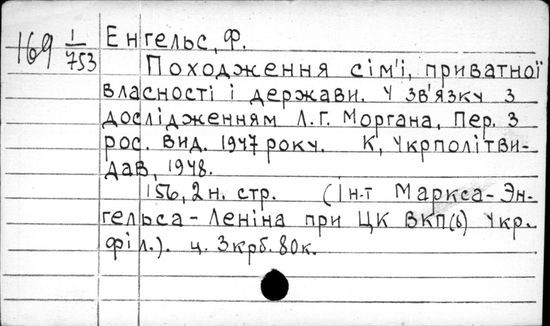 169 1/753
Енгельс, Ф.
Походження сім'ї, приватної
власності і держави. У зв'язку з
дослідженням Л.Г. Моргана. Пер. з
рос. вид. 1947 року. К, Укрполітви-
дав, 1948.
156, 2 н. стр. (Ін-т Маркса-Эн-
гельса-Леніна при ЦК ВКП(б) Укр.
філ.). ц. 3 крб. 80 к.